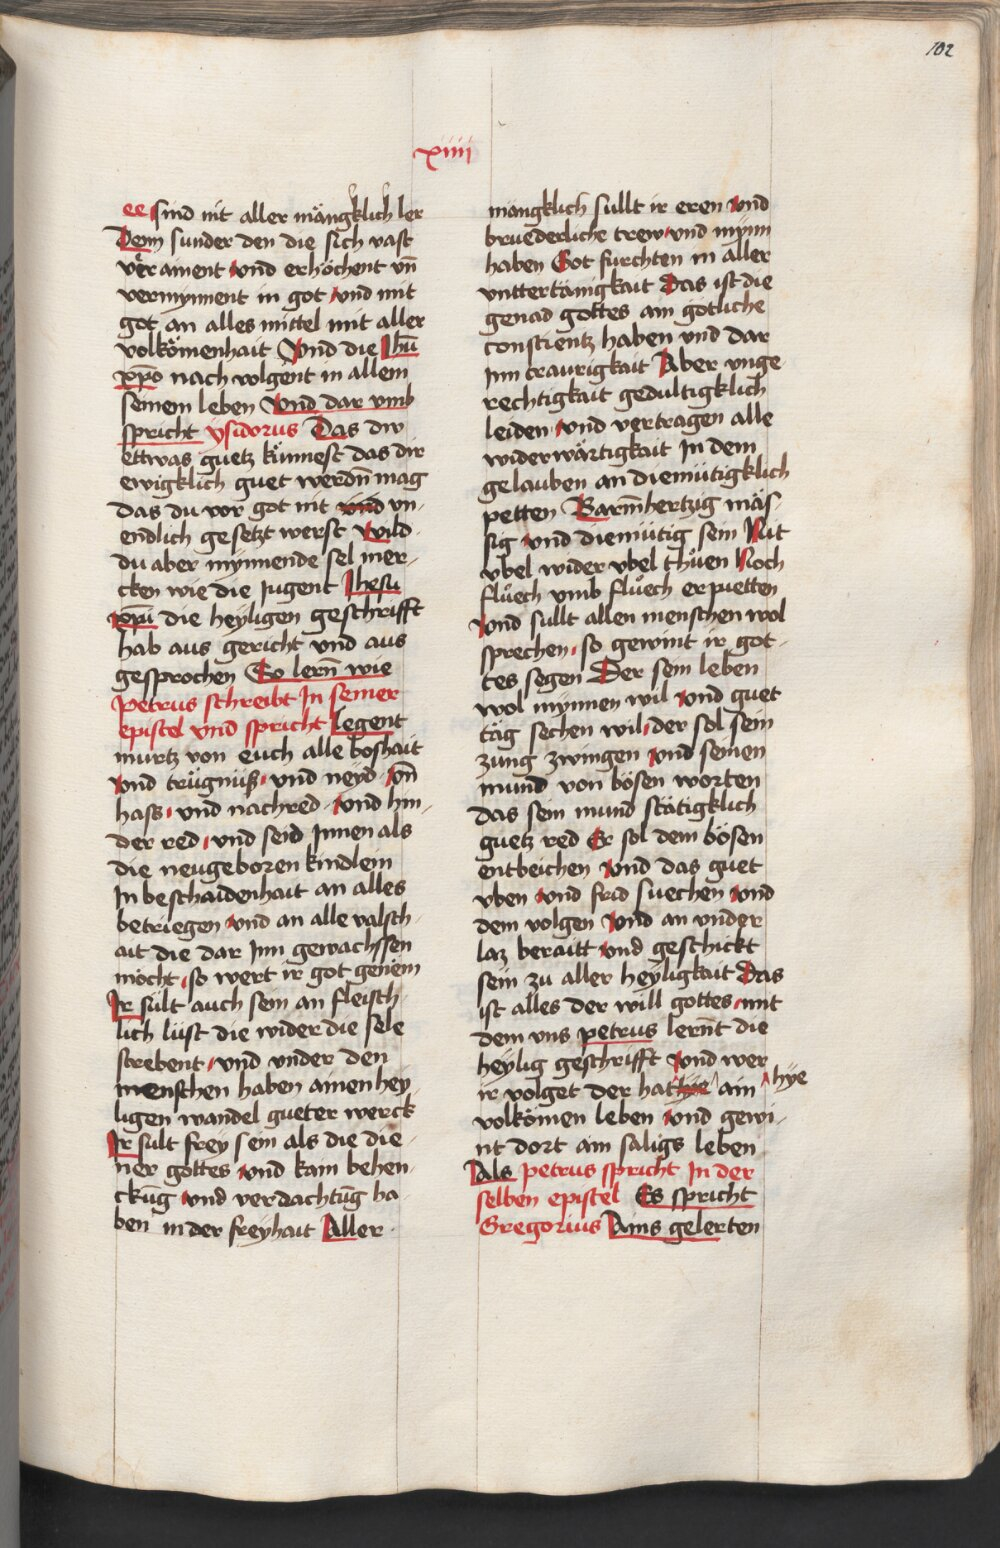 102
xiiii
ee sind nit aller mängklich ler
Denn sunder den die sich vast
verament vnd erhöchent vn̄
vermynnent in got vnd mit
got an alles mittel mit aller
volkömenhait Vnd die Jhū
xp̄o nach volgent in allem
seinem leben Vnd dar vmb
spricht ysidorus Das dw
ettwas guetz künnest das dir
ewigklich guet werdn̄ mag
das du vor got nit vnd vn-
endlich gesetzt werst Wild
du aber mynnende sel mer-
cken wie die Jugent Jhesu
xp̄i die heyligen geschrifft
hab aus gericht vnd aus
gesprochen So lern̄ wie
petrus schreibt In seiner
epistel vnd spricht Legent
murtz von euch alle boshait
vnd trügnüß vnd neyd vn̄
hass vnd nachred vnd hin-
der red vnd seid Innen als
die neugeboren kindlein
In beschaidenhait an alles
betriegen vnd an alle valsch-
ait die dar Inn gewachssen
möcht so wert ir got genem
Ir sült auch sein an fleisch-
lich lüst die wider die sele
strebent vnd vnder den
menschen haben ainen hey
ligen wandel gueter werck
Ir sult frey sein als die die-
ner gottes vnd kain behen-
ckūg vnd verdachtūg ha-
ben in der freyhait Aller-
mängklich sullt ir eren vnd
bruederliche trew vnd mynn
haben Got furchten in aller
vnttertänigkait Das ist die
genad gottes ain götliche
constientz haben vnd dar
Inn traurigkait Aber vnge
rechtigkait gedultigklich
leiden vnd vertragen alle
widerwärtigkait In dem
gelauben an diemütigklich
petten Barm̄hertzig mäs-
sig vnd diemütig sein Nit
vbel wider vbel thüen Noch
flüech vmb flüech erpuetten
Vnd sullt allen menschen wol
sprechen so gewint ir got-
tes segen Der sein leben
wol mynnen wil vnd guet
täg sechen wil der sol sein
zung zwingen vnd seinen
mund von bösen worten
das sein mund stätigklich
guetz red Er sol dem bösen
entbeichen vnd das guet
vben vnd frid suechen vnd
dem volgen vnd an vnder
laz beraitt vnd geschickt
sein zu aller heyligkait Das
ist alles der will gottes mit
dem vns petrus lern̄t die
heylig geschrifft Vnd wer
ir volget der hat hye ain hye
volkömen leben vnd gewi-
nt dort ain säligs leben
Als petrus spricht In der
selben epistel Es spricht
Gregorius Ains gelerten